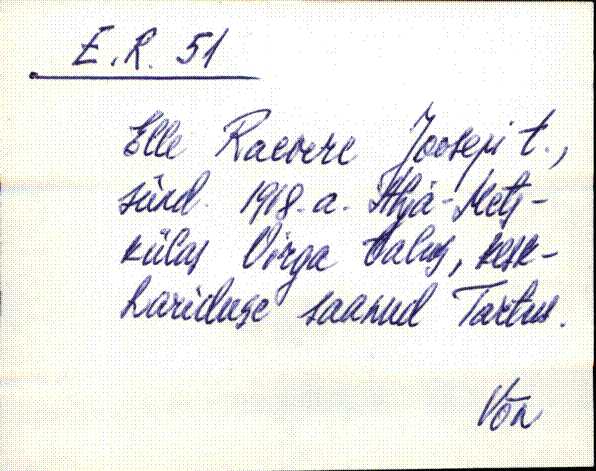 E.R. 51
Elle Raevere Joosepi t.,
sünd. 1918. a. Ahja-Mets-
külas Virga talus, kesk-
hariduse saanud Tartus.
Võn